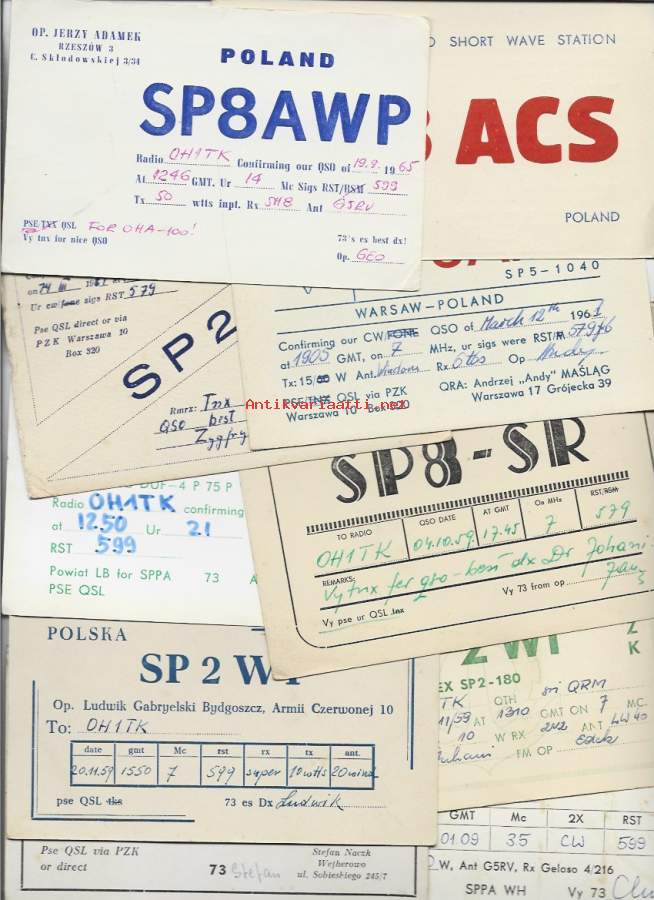 OP. JERZY ADAMEK
RZESZÓW 3
C. Skłodowskiej 3/34
POLAND
SP8AWP
Radio OH1TK Confirming our QSO of 19.9. 1965
At 1246 GMT. Ur 14 Mc Sigs RST/RSM 599
Tx 50 wtts inpt. Rx SH8 Ant G5RV
PSE/TNX QSL FOR OHA-100!
Vy tnx for nice QSO
73's es best dx!
Op. GEO
SHORT WAVE STATION
ACS
POLAND
SP5-1040
WARSAW-POLAND
Confirming our CW/FONE QSO of March 12th 196
at 1905 GMT, on 7 MHz, ur sigs were RST/
Tx: 15/ W Ant. Rx Op Andy
PSE/TNX QSL via PZK
Warszawa 10 Box 320
QRA: Andrzej „Andy" MAŚLĄG
Warszawa 17 Grójecka 39
Ur cw/fone sigs RST 579
Pse QSL direct or via
PZK Warszawa 10
Box 320
SP2
Rmrz: Tnx
QSO best
Antikvariaatti.net
DUF-4 P 75 P
Radio OH1TK confirming
at 1250 Ur 21
RST 599
Powiat LB for SPPA 73
PSE QSL
SP8-SR
TO RADIO QSO DATE AT GMT On MHz RST/RSM
OH1TK 04.10.59. 17.45 7 579
REMARKS:
Vy tnx fer qso - best dx Dr Johani
Vy pse ur QSL tnx
Vy 73 from op
POLSKA
SP2W
Op. Ludwik Gabryelski Bydgoszcz, Armii Czerwonej 10
To: OH1TK
date gmt Mc rst rx tx ant.
20.11.59 1550 7 599 super 10 wtts 20
pse QSL tks 73 es Dx Ludwik
EX SP2-180
TK QTH QRM
11/59 AT 1310 GMT ON 7 MC
10 W RX ANT LW 40
FM OP Edek
Pse QSL via PZK
or direct
73 Stefan
Stefan Naczk
Wejherowo
ul. Sobieskiego 245/7
GMT Mc 2X RST
01.09 3.5 CW 599
W, Ant G5RV, Rx Geloso 4/216
SPPA WH Vy 73